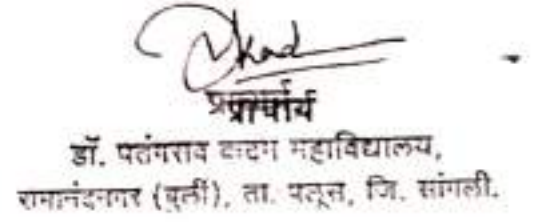 प्राचार्य
डॉ. पतंगराव कदम महाविद्यालय,
रामानंदनगर (बुर्ली), ता. पलूस, जि. सांगली.